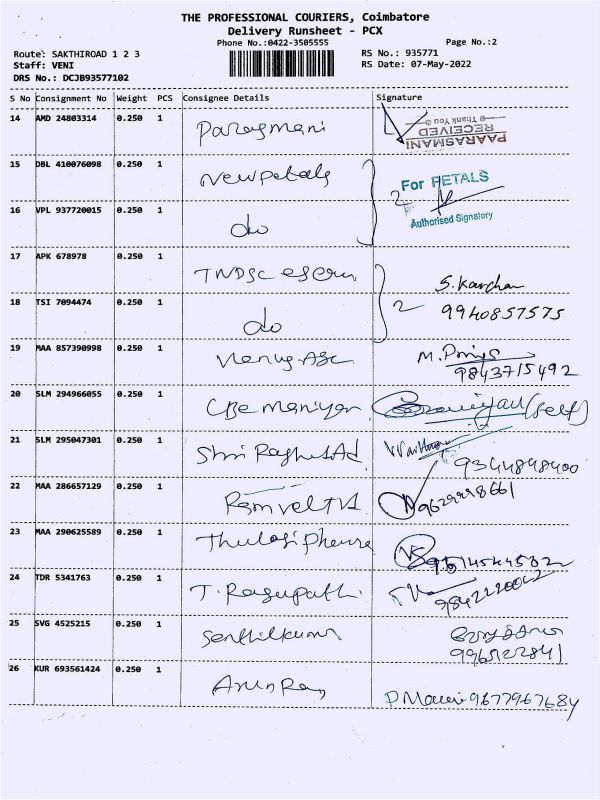 THE PROFESSIONAL COURIERS, Coimbatore
Delivery Runsheet - PCX
Phone No.:0422-3505555
Page No.:2
Route: SAKTHIROAD 1 2 3
RS No.: 935771
Staff: VENI
RS Date: 07-May-2022
DRS No.: DCJB93577102
S No Consignment No Weight PCS Consignee Details Signature
14 AMD 24803314 0.250 1 Parasmani
PAARASMANI
RECEIVED
Thank You
15 DBL 410076098 0.250 1 Newpetals
2 For PETALS
Authorised Signatory
16 VPL 937720015 0.250 1 do
17 APK 678978 0.250 1 TNDSC
18 TSI 7094474 0.250 1 do
2
9940857575
19 MAA 857390998 0.250 1
9843715492
20 SLM 294966055 0.250 1 CBE Maniyan
(self)
21 SLM 295047301 0.250 1 Shri
9344898400
22 MAA 286657129 0.250 1
23 MAA 290625589 0.250 1
24 TDR 5341763 0.250 1 T. Ragupathi
25 SVG 4525215 0.250 1 Senthilkumar
26 KUR 693561424 0.250 1 Arun
9677967684